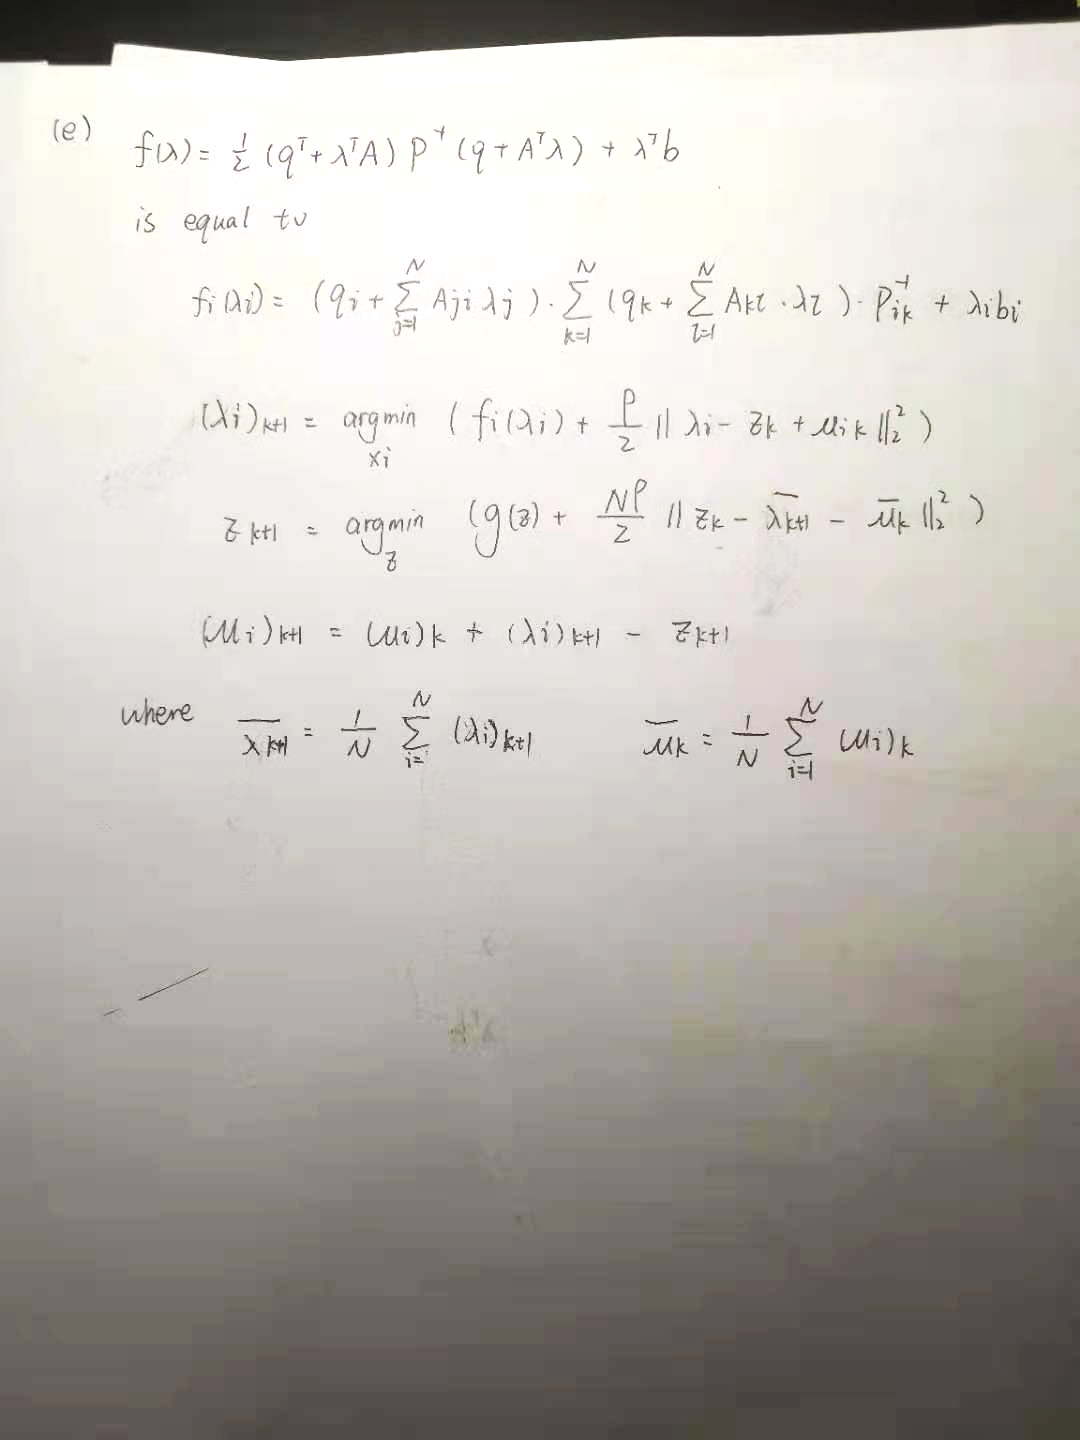 (e) f(λ) = 1/2 (qᵀ + λᵀA) P⁻¹ (q + Aᵀλ) + λᵀb
is equal to
fi(λi) = (qi + Σ_{j=1}^{N} Aji λj) · Σ_{k=1}^{N} (qk + Σ_{l=1}^{N} Akl · λl) · P⁻¹ik + λibi
(λi)k+1 = argmin_{xi} (fi(λi) + ρ/2 ‖λi - zk + μik‖₂²)
zk+1 = argmin_{z} (g(z) + Nρ/2 ‖zk - λ̄k+1 - μ̄k‖₂²)
(μi)k+1 = (μi)k + (λi)k+1 - zk+1
where λ̄k+1 = 1/N Σ_{i=1}^{N} (λi)k+1 μ̄k = 1/N Σ_{i=1}^{N} (μi)k